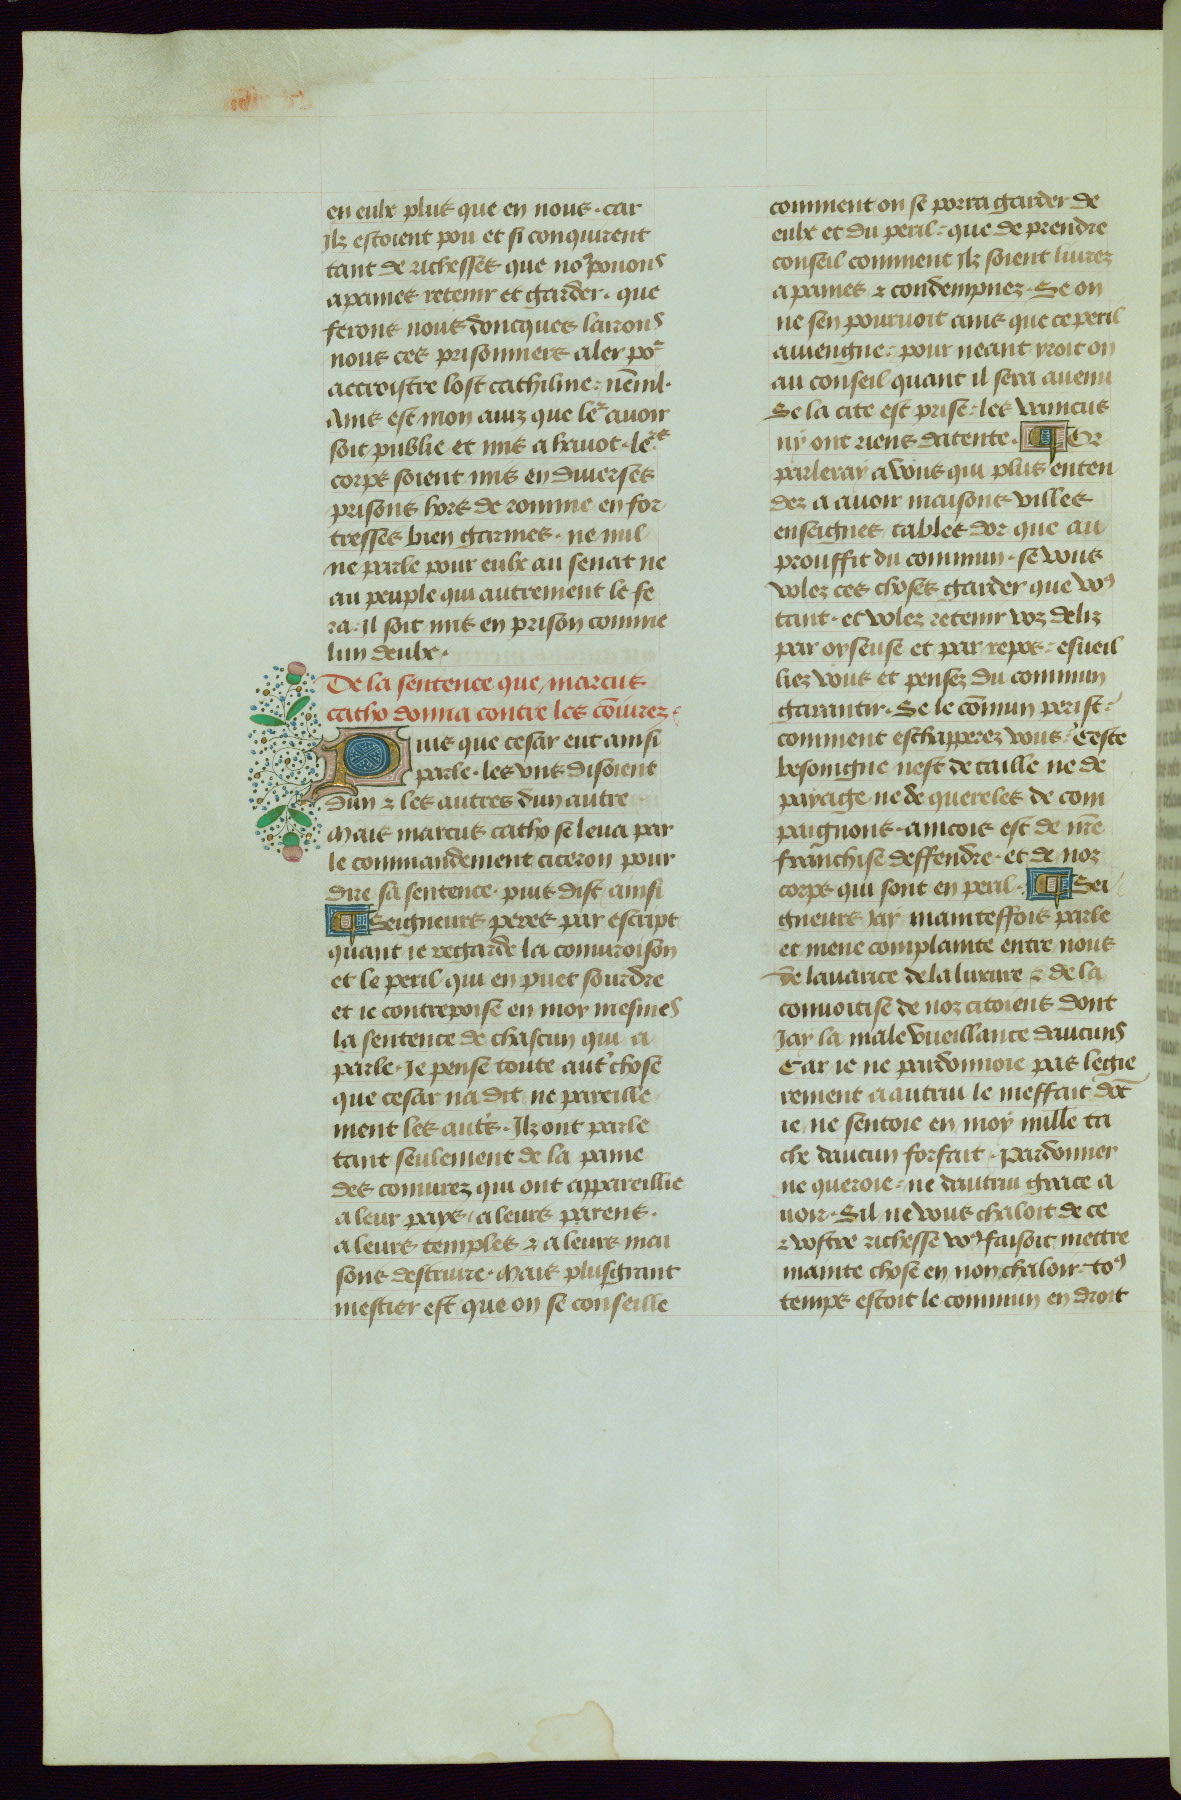 en eulx plus que en nous · car
Ilz estoient pou et si conquirent
tant de richesses que noꝰ pouons
a paines retenir et garder · que
ferons nous doncques lairons
nous ces prisonniers aler poͬ
accroistre lost cathiline : nēnil ·
Ains est mon auiz que leͬ auoir
soit publie et mis a havot · leͬs
corps soient mis en diuerses
prisons hors de romme en for
tresses bien garnies · ne nul
ne parle pour eulx au senat ne
au peuple qui autrement le fe
ra : il soit mis en prison comme
lun deulx ·
De la sentence que marcus
catho donna contre les cōiurez
Puis que cesar eut ainsi
parle · les vns disoient
dun ⁊ les autres dun autre
Mais marcus catho se leua par
le commandement ciceron pour
dire sa sentence · puis dist ainsi
¶ Seigneurs peres par escript
quant ie regarde la coniuroison
et le peril qui en puet sourdre
et ie contrepoise en moy mesmes
la sentence de chascun qui a
parle · Je pense toute autͬ chose
que cesar na dit ne pareille
ment les autͬs · Ilz ont parle
tant seulement de la paine
des coniurez qui ont appareillie
a leur pays / a leurs parens ·
a leurs temples ⁊ a leurs mai
sons destruire · Mais plus grant
mestier est que on se conseille
comment on se porra garder de
eulx et du peril : que de prendre
conseil comment Ilz soient liurez
a paines ⁊ condempnez · Se on
ne sen pouruoit ains que ce peril
auiengne : pour neant yroit on
au conseil quant il sera auenu
Se la cite est prise : les vaincus
ny ont riens datente · ¶ Or
parleray a vous qui plus enten
dez a auoir maisons villes
enseignes tables dor que au
prouffit du commun · se vous
volez ces choses garder que voꝰ
tant · et volez retenir voz deliz
par oyseuse et par repos : esueil
liez vous et pensez du commun
garantir · Se le cōmun perist :
comment eschapperez vous : Ceste
besoingne nest de taille ne de
payage ne de quereles de com
paignons · aincois est de nr̄e
franchise deffendre · et de noz
corps qui sont en peril · ¶ Sei
gneurs Jay mainteffois parle
et mene complainte entre nous
de lauarice de la luxure ⁊ de la
conuoitise de noz citoiens dont
Jay la male vueillance daucuns
Car ie ne pardonnoie pas legie
rement a autrui le meffait dōt
ie ne sentoie en moy nulle ta
che daucun forfait · Pardonner
ne queroie : ne dautrui grace a
uoir · Sil ne vous chaloit de ce
⁊ vostre richesse voꝰ faisoit mettre
mainte chose en nonchaloir · toꝰ
temps estoit le commun en droit